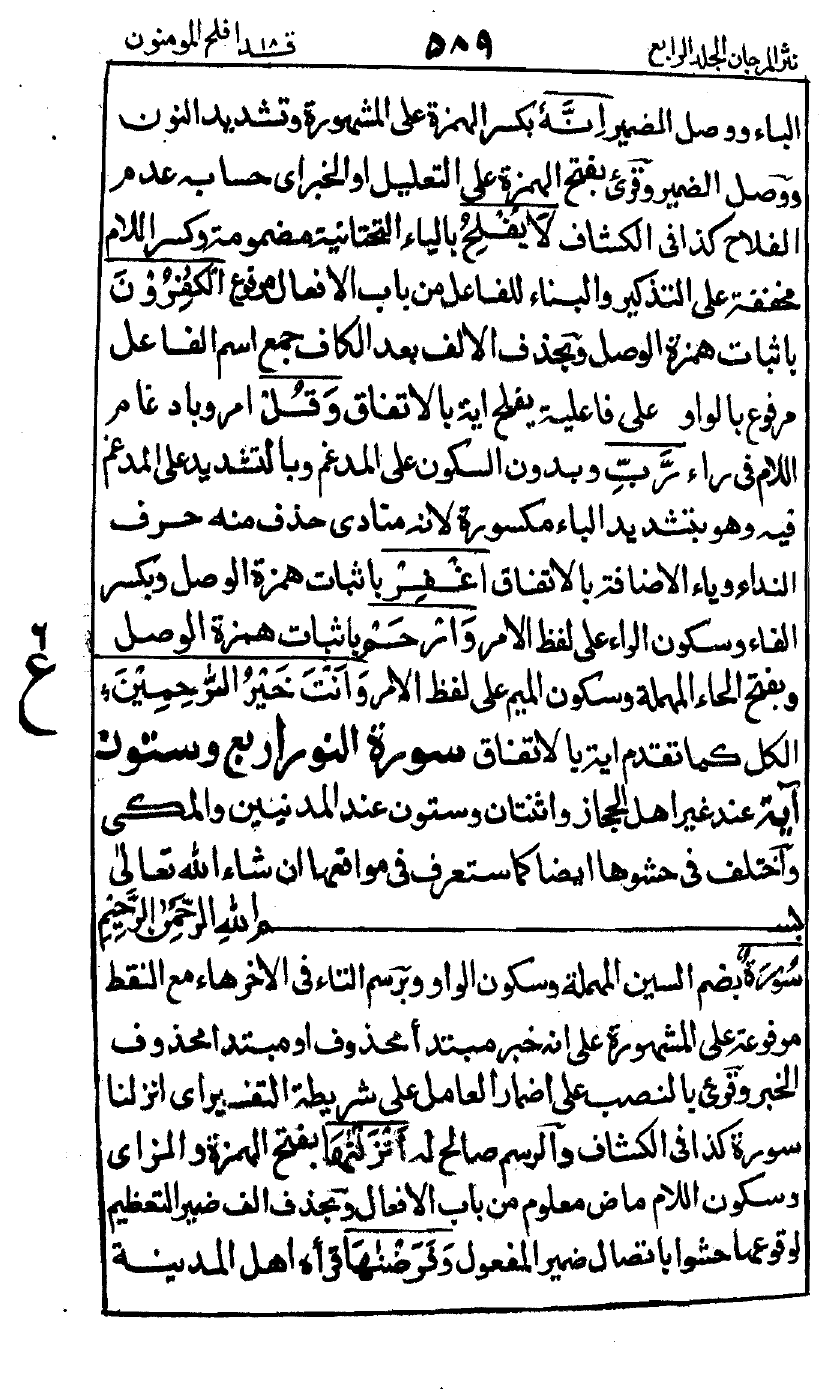 نثر المرجان الجلد الرابع ٥٨٩ قد ١٨ افلح المومنون
الباء ووصل الضمير اِنَّهٗ بكسر الهمزة على المشهورة وتشديد النون
ووصل الضمير وقرئ بفتح الهمزة على التعليل او الخبر اى حسابه عدم
الفلاح كذا فى الكشاف لَا يُفْلِحُ بالياء التحتانية مضمومة وكسر اللام
مخففة على التذكير والبناء للفاعل من باب الافعال مرفوع الْكٰفِرُوْنَ
باثبات همزة الوصل وبحذف الالف بعد الكاف جمع اسم الفاعل
مرفوع بالواو على فاعلية يفلح اية بالاتفاق وَقُلْ امر وبادغام
اللام فى راء رَّبِّ وبدون السكون على المدغم وبالتشديد على المدغم
فيه وهو بتشديد الباء مكسورة لانه منادى حذف منه حرف
النداء وياء الاضافة بالاتفاق اغْفِرْ باثبات همزة الوصل وبكسر
الفاء وسكون الراء على لفظ الامر وَارْحَمْ باثبات همزة الوصل
وبفتح الحاء المهملة وسكون الميم على لفظ الامر وَاَنْتَ خَيْرُ الرّٰحِمِيْنَ ء
ع ٦
الكل كما تقدم اية بالاتفاق سورة النور اربع وستون
آية عند غير اهل الحجاز واثنتان وستون عند المدنيين والمكى
واختلف فى حشوها ايضا كما ستعرف فى مواقعها ان شاء الله تعالىٰ
بسم اللهِ الرَّحْمٰنِ الرَّحِيْمِ
سُوْرَةٌ بضم السين المهملة وسكون الواو وبرسم التاء فى الاخر هاء مع النقط
موفوعة على المشهورة على انه خبر مبتدأ محذوف او مبتدا محذوف
الخبر وقرئ بالنصب على اضمار العامل على شريطة التفسير اى انزلنا
سورة كذا فى الكشاف والرسم صالح له اَنْزَلْنٰهَا بفتح الهمزة والزاى
وسكون اللام ماض معلوم من باب الافعال وبحذف الف ضمير التعظيم
لوقوعها حشوا باتصال ضمير المفعول وَفَرَضْنٰهَا قرأه اهل المدينة